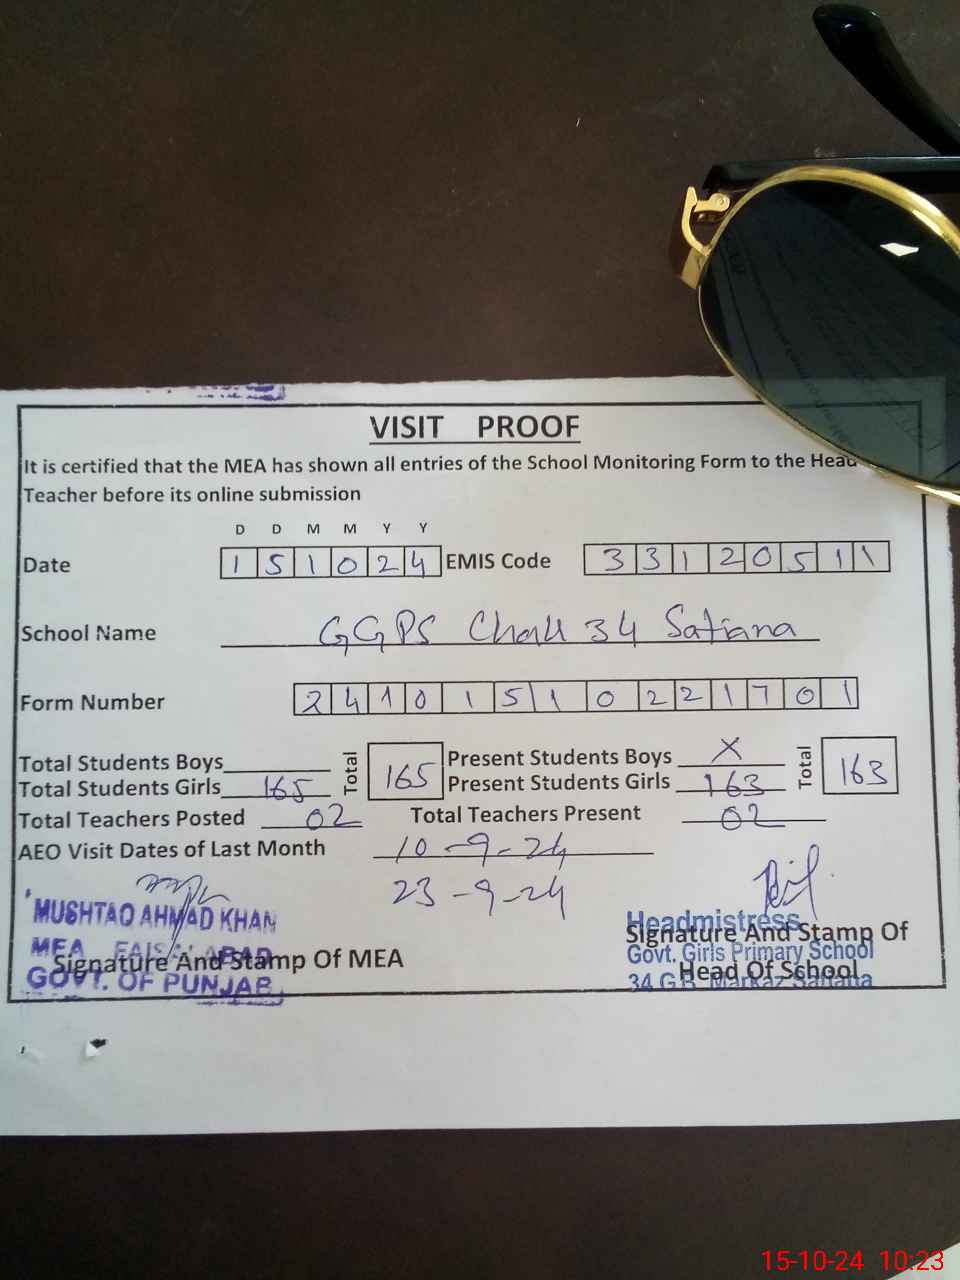 VISIT PROOF
It is certified that the MEA has shown all entries of the School Monitoring Form to the Head
Teacher before its online submission
D D M M Y Y
Date 1 5 1 0 2 4 EMIS Code 3 3 1 2 0 5 1 1
School Name GGPS Chak 34 Satiana
Form Number 2 4 1 0 1 5 1 0 2 2 1 7 0 1
Total Students Boys Total 165 Present Students Boys X Total 163
Total Students Girls 165 Present Students Girls 163
Total Teachers Posted 02 Total Teachers Present 02
AEO Visit Dates of Last Month 10-9-24
23-9-24
MUSHTAQ AHMAD KHAN
MEA FAISALABAD
GOVT. OF PUNJAB
Signature And Stamp Of MEA
Headmistress
Govt. Girls Primary School
34 G.B. Markaz Satiana
Signature And Stamp Of
Head Of School
15-10-24 10:23